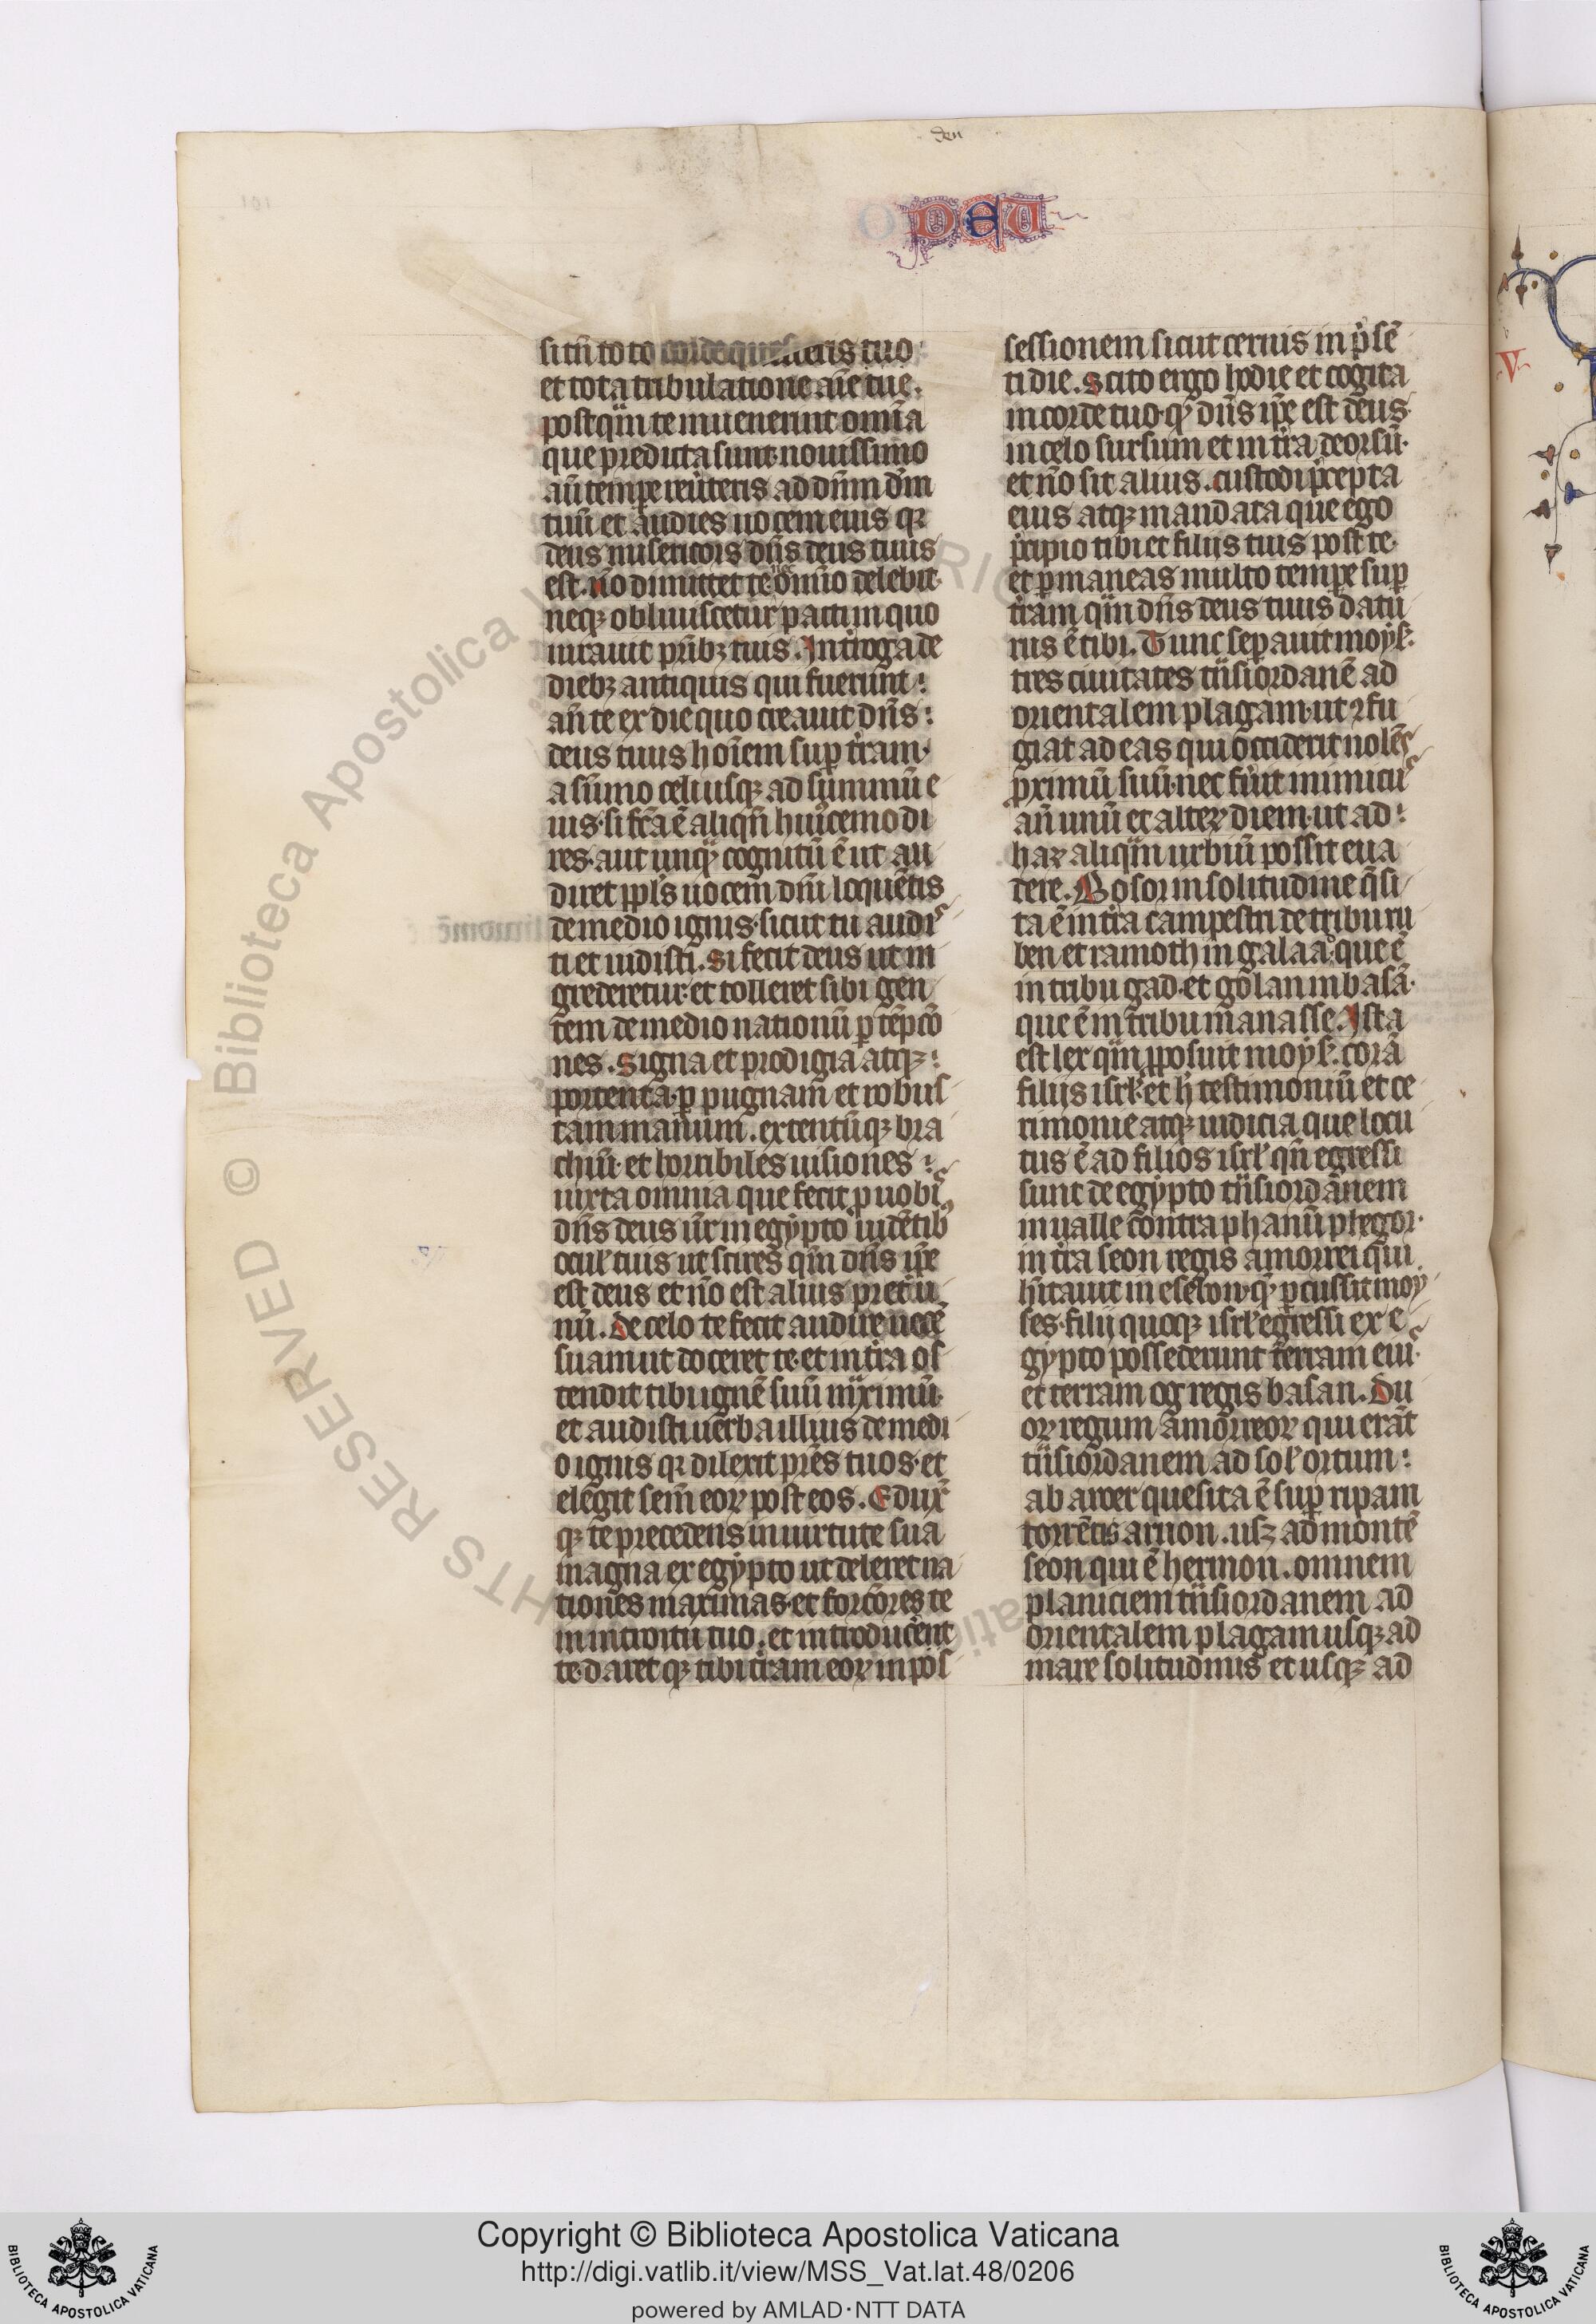 deu
DEU
si tn̄ toto corde quesieris tuo:
et tota tribulatione aīe tue.
postq̄m te inuenerint om̄ia
que predicta sunt nouissimo
aūt tempe reūteris ad dn̄m dm̄
tuū et audies uocem eius qr
deus misericors dn̄s deus tuus
est. nō dimittet te nec om̄īo delebit.
neqꝫ obliuiscetur pacti in quo
iurauit pribꝫ tuis. Int̄roga de
diebꝫ antiquis qui fuerunt:
an̄ te ex die quo creauit dn̄s:
deus tuus hoīem sup t̄ram.
a sūmo celi usqꝫ ad summū e
ius. si fcā ē aliqn̄ huiᵒcemodi
res. aut unqꝫ cognitū ē ut au
diret ppl̄s uocem dn̄i loquētis
de medio ignis. sicut tu audis
ti et uidisti. Si fecit deus ut in
grederetur. et tolleret sibi gen
tem de medio nationū p tēptō
nes. Signa et prodigia atqꝫ:
portenta. p pugnam et robus
tam manum. extentūqꝫ bra
chiū. et horribiles uisiones:
iuxta omnia que fecit p uobis
dn̄s deus ūr in egypto uidētibꝰ
ocul̄ tuis ut scires qm̄ dn̄s ip̄e
est deus et nō est alius pret̄ u
nū. De celo te fecit audire uocē
suam ut doceret te. et in t̄ra os
tendit tibi ignē suū maximū.
et audisti uerba illius de medi
o ignis qr dilexit prēs tuos. et
elegit sem̄ eoꝝ post eos. Eduxit
qꝫ te precedens in uirtute sua
magna ex egypto ut deleret na
tiones maximas. et forcōres te
in introitu tuo. et introduceret
te. daret qꝫ tibi t̄ram eoꝝ in pos
sessionem sicut cernis in p̄sē
ti die. Scito ergo hodie et cogita
in corde tuo qꝫ dn̄s ip̄e est deus
in celo sursum et in t̄ra deorsū.
et nō sit alius. custodi p̄cepta
eius atqꝫ mandata que ego
p̄cipio tibi et filijs tuis post te.
et pmaneas multo tempe sup
t̄ram q̄m dn̄s deus tuus datu
rus ē tibi. Tunc sepauit moys̄.
tres ciuitates t̄nsiordanē ad
orientalem plagam. ut ꝛfu
giat ad eas qui occiderit nolēs
pximū suū. nec fūit inimicus
an̄ unū et alteꝝ diem. ut ad:
haꝝ aliq̄m urbiū possit eua
dere. Bosor in solitudine q̄ si
ta ē in t̄ra campestri de tribu ru
ben et ramoth in galaad. que ē
in tribu gad. et golan in basā.
que ē in tribu manasse. Ista
est lex q̄m pposuit moys̄. corā
filijs isrl̄. et h̄ testimoniū et ce
rimonie atqꝫ iudicia que locu
tus ē ad filios isrl̄ qn̄ egressi
sunt de egypto t̄nsiordanem
in ualle contra phanū phegor.
in t̄ra seon regis amorrei qui
h̄itauit in esebon. qꝫ pcussit moy
ses. filij quoqꝫ isrl̄ egressi ex e
gypto possederunt terram eius.
et terram og regis basan. Du
oꝝ regum amorreoꝝ qui erāt
t̄nsiordanem ad sol̄ ortum:
ab aroer que sita ē sup ripam
torrētis arnon. usꝫ ad montē
seon qui ē hermon. omnem
planiciem t̄nsiordanem ad
orientalem plagam usqꝫ ad
mare solitudinis et usqꝫ ad
V
Copyright © Biblioteca Apostolica Vaticana
http://digi.vatlib.it/view/MSS_Vat.lat.48/0206
powered by AMLAD·NTT DATA
BIBLIOTECA APOSTOLICA VATICANA
BIBLIOTECA APOSTOLICA VATICANA